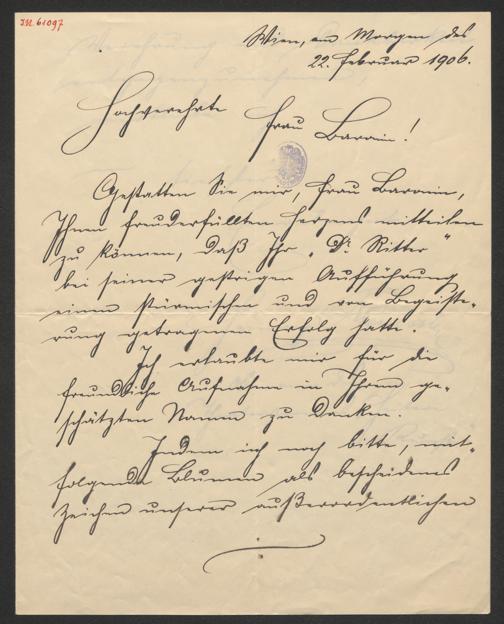 I.N. 61097
Wien, am Morgen des
22. Februar 1906.
Hochverehrte
Frau Baronin!
Gestatten Sie mir, Frau Baronin,
Ihnen freuderfüllten Herzens mitteilen
zu können, daß Ihr „Dr. Ritter“
bei seiner gestrigen Aufführung
einen stürmischen und von Begeiste-
rung getragenen Erfolg hatte.
Ich erlaubte mir für die
freundliche Aufnahme in Ihrem ge-
schätzten Namen zu danken.
Indem ich noch bitte, mit-
folgende Blumen als bescheidenes
Zeichen unserer außerordentlichen